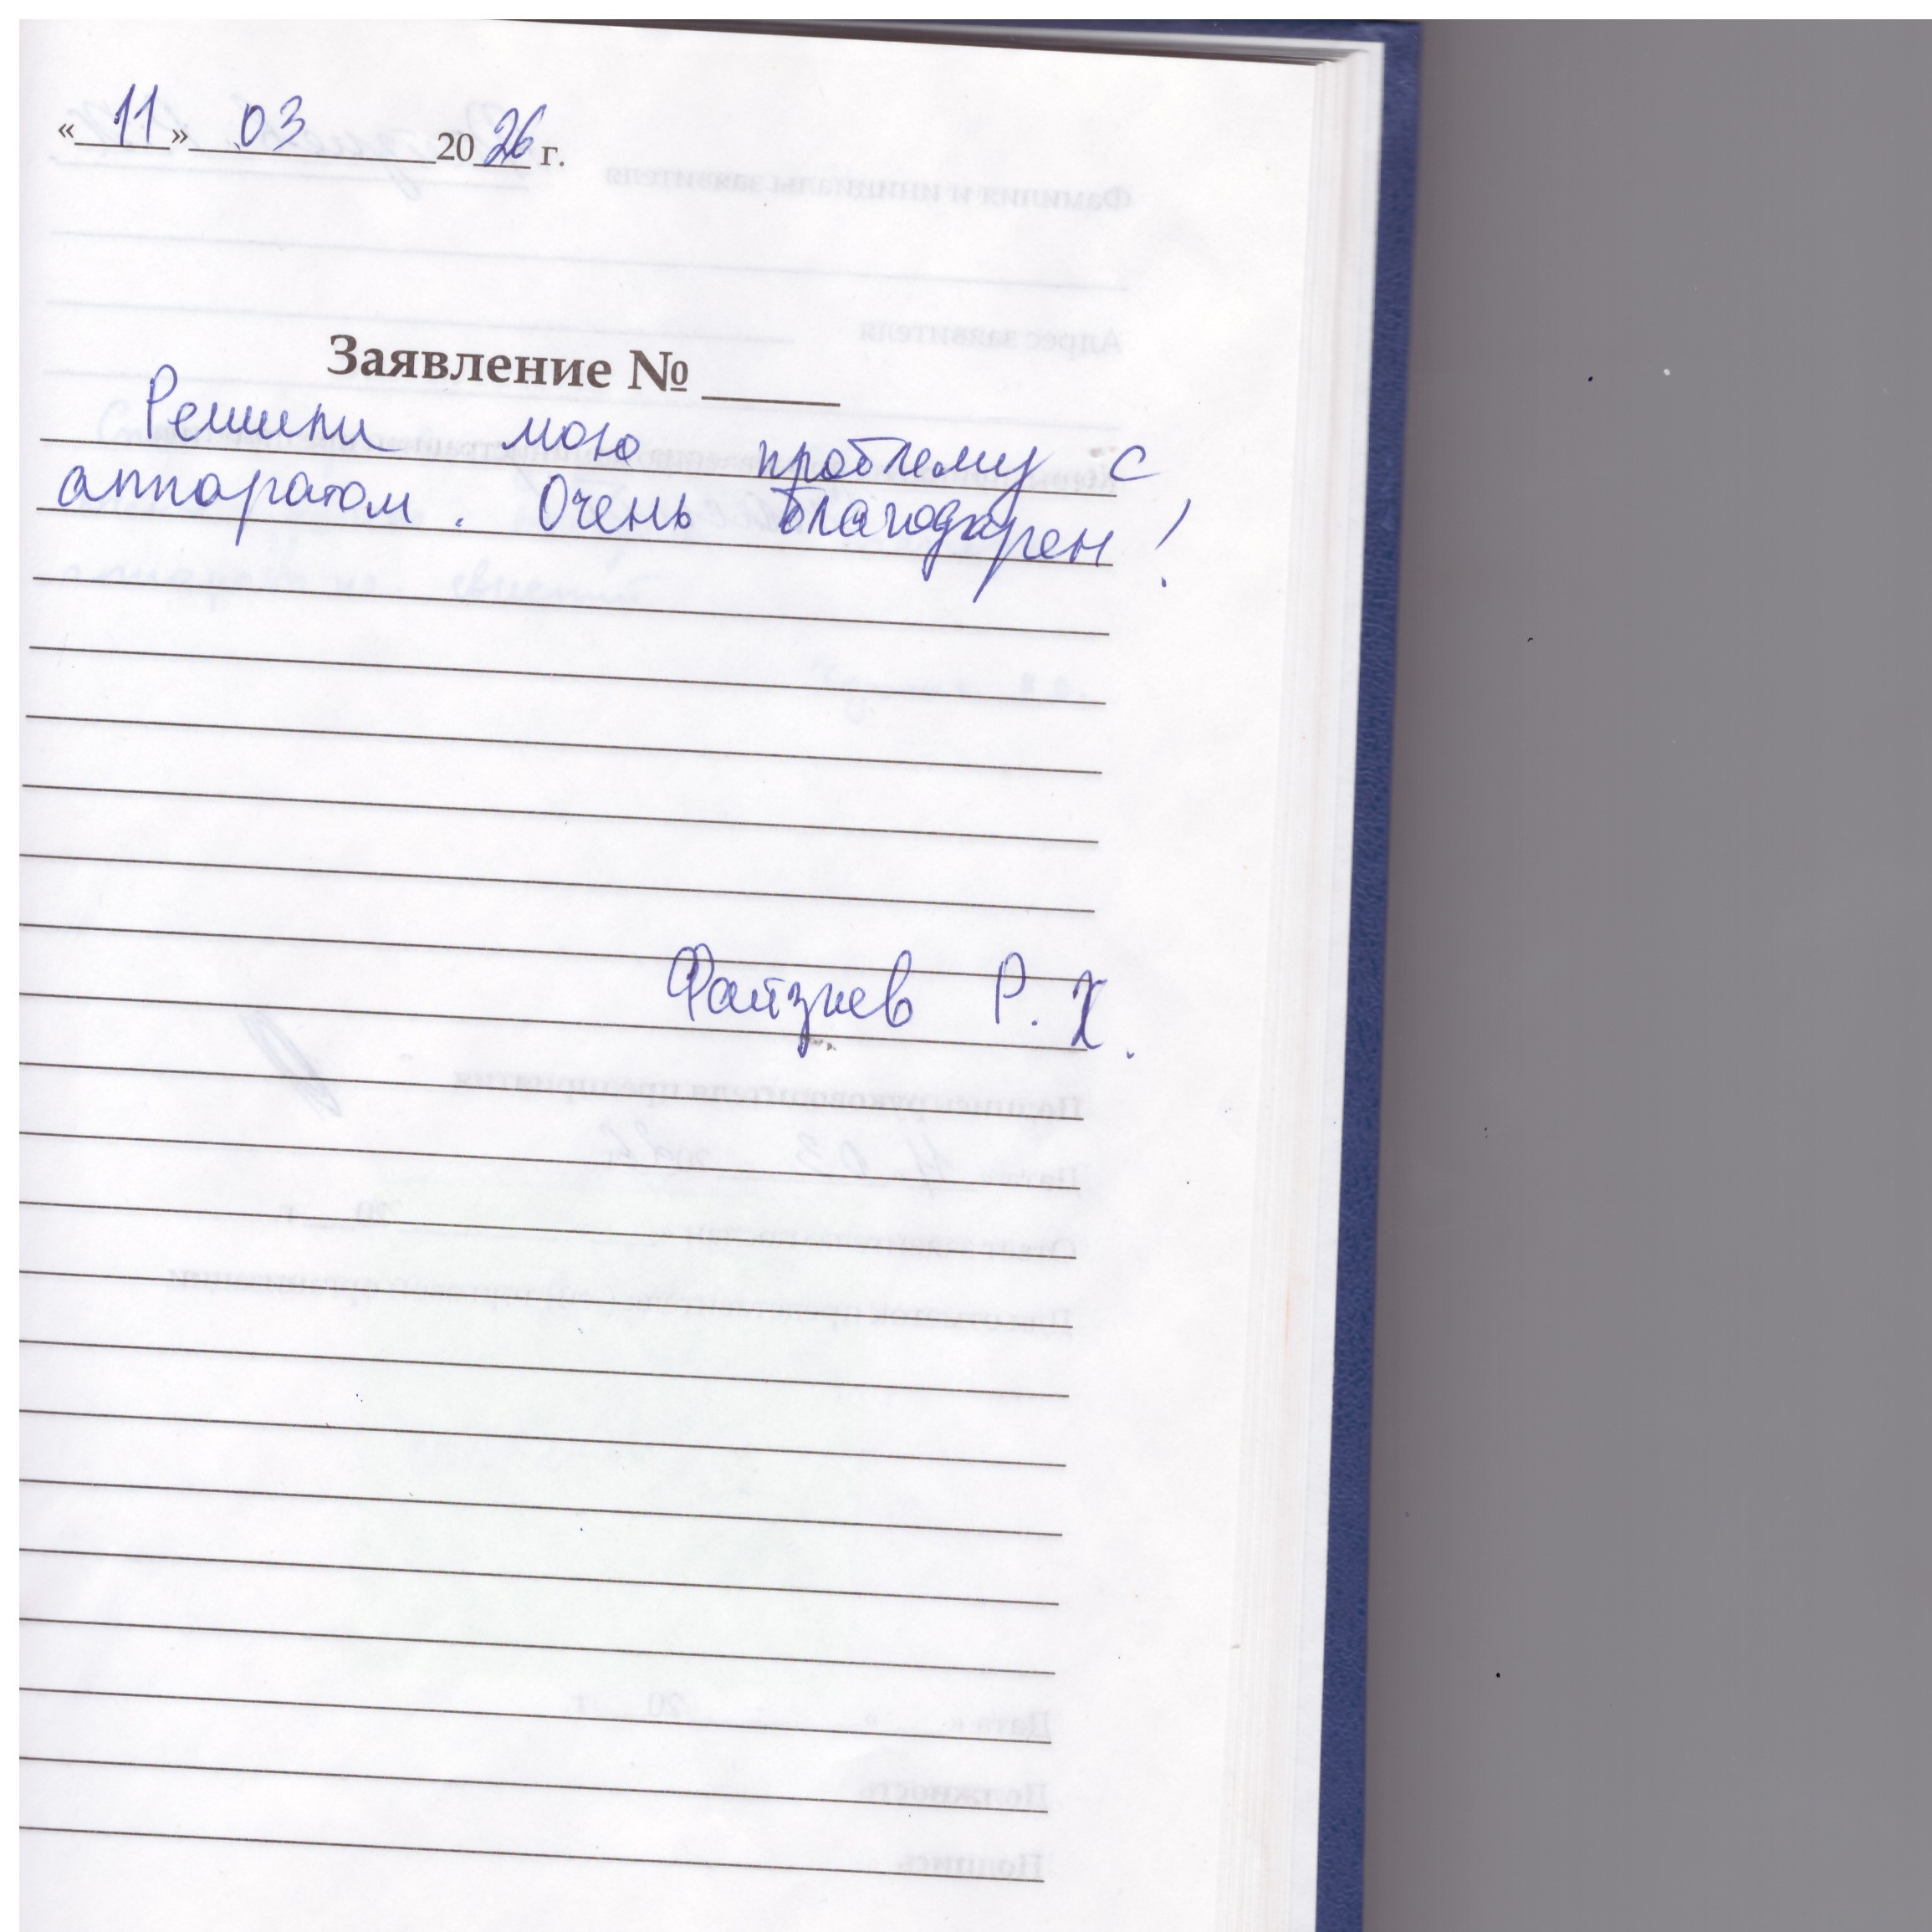 «11» 03 2026 г.
Заявление № ____
Решили мою проблему с
аппаратом. Очень благодарен!
Файзиев Р. Х.